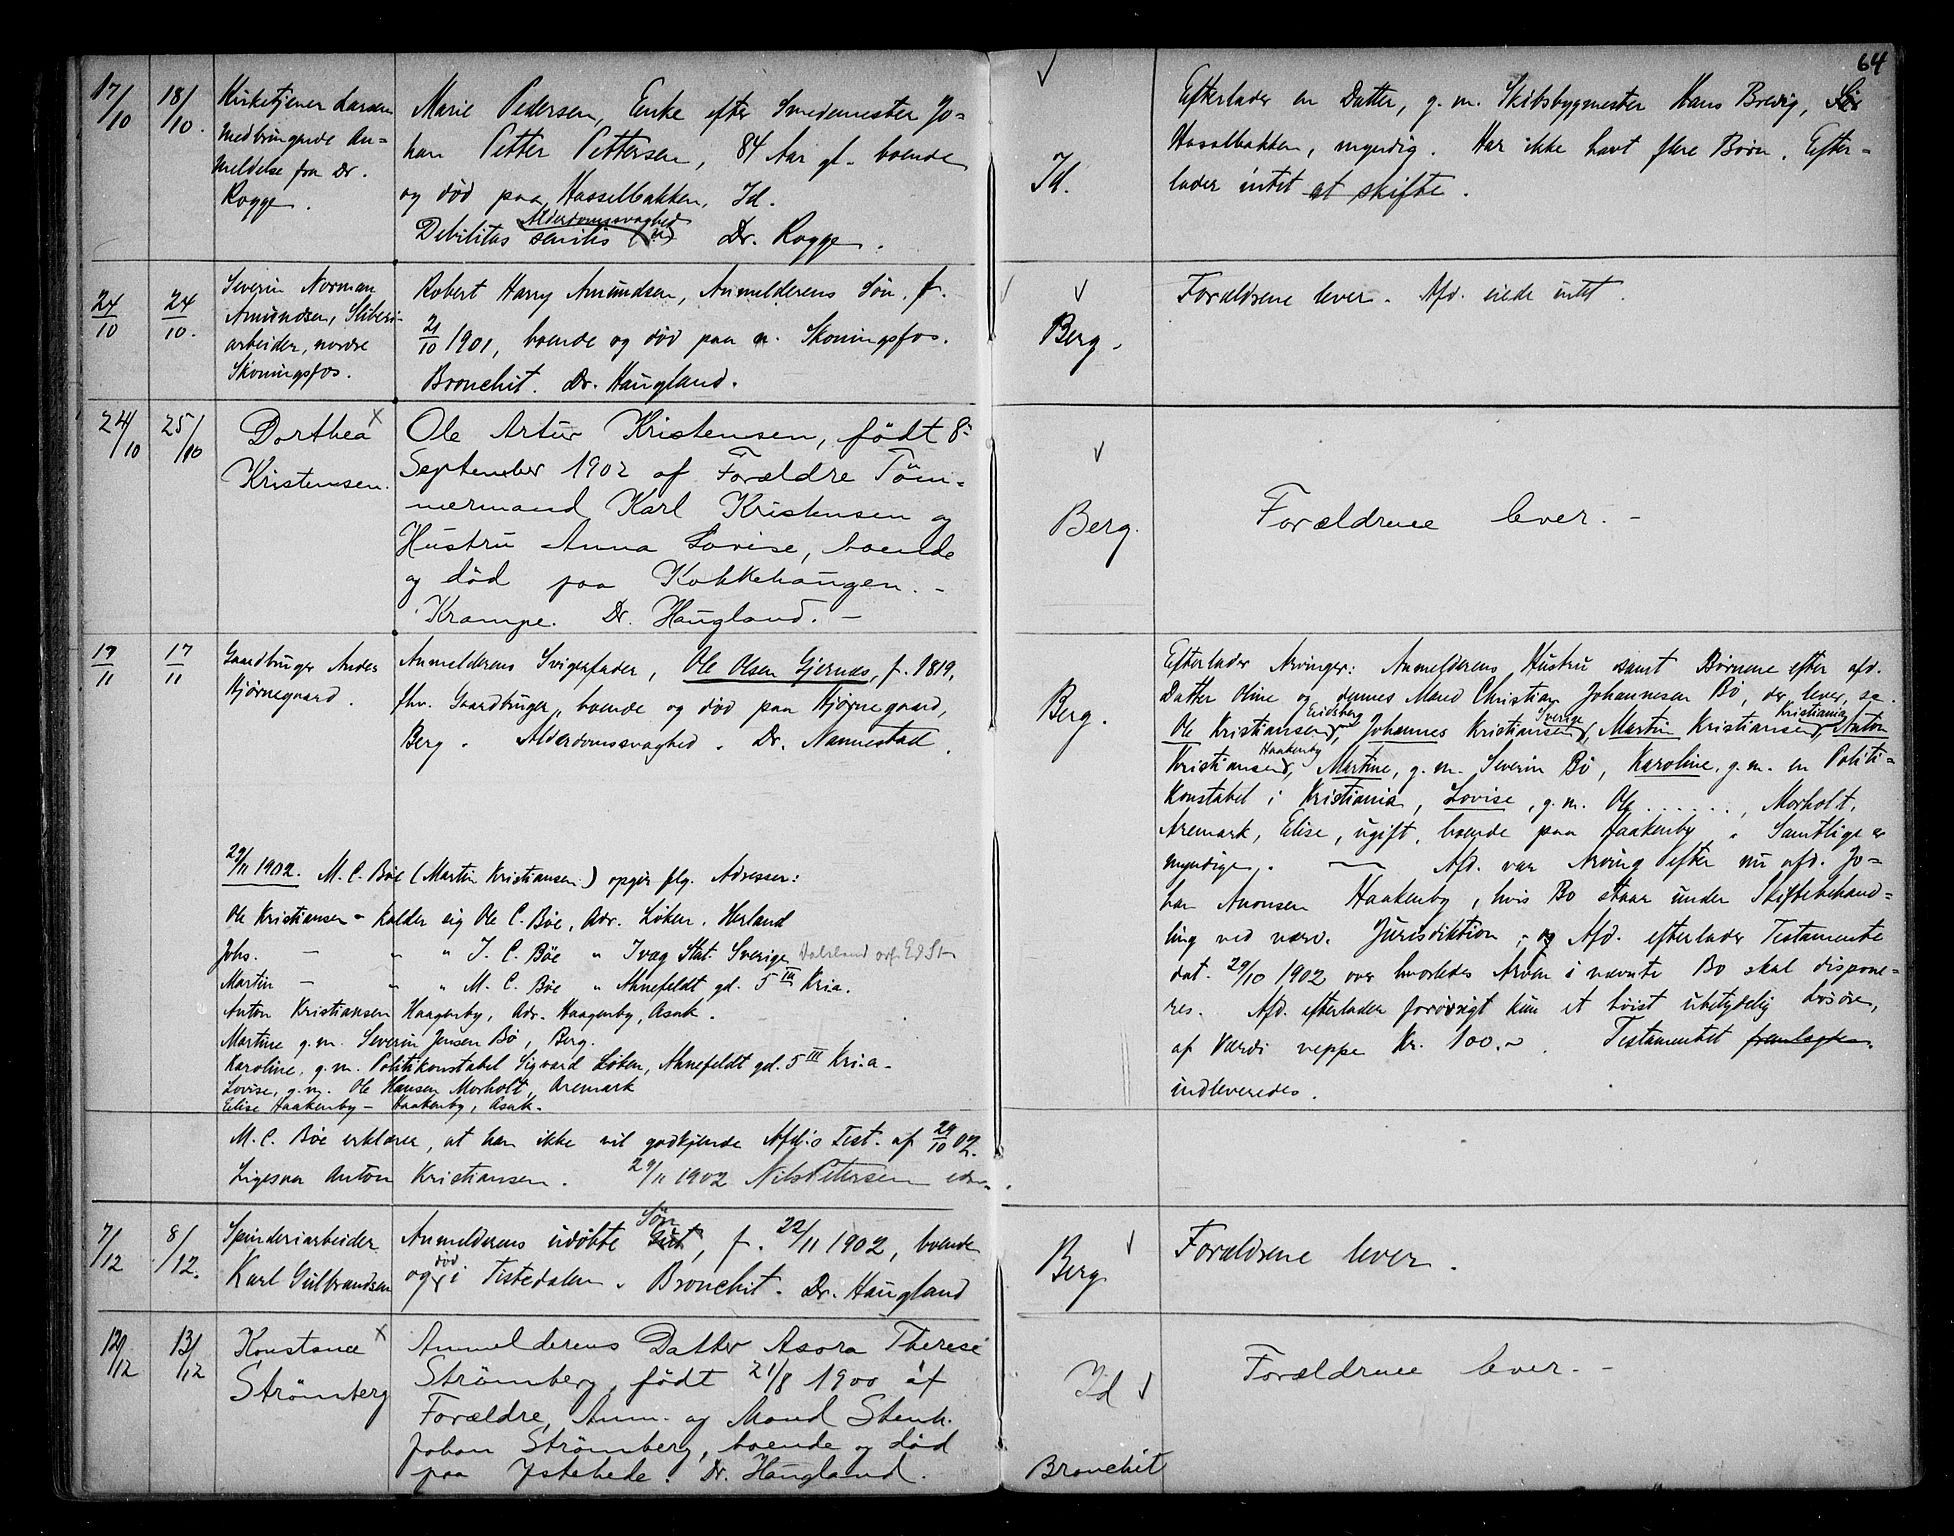 64
17/10 18/10. Kirketjener Larsen
medbringende An=
meldelse fra Dr.
Rogge.
Marie Pedersen, Enke efter Smedemester Jo=
han Petter Pettersen, 84 Aar gl. boende
og död paa Hasselbakken, Id.
Alderdomssvaghed
Debilitas senilis Dr. Rogge.
Id.
Efterlader en Datter, g.m. Skibsbygmester Hans Brevig,
Hasselbakken, myndig. Har ikke havt flere Børn. Efter=
lader intet at skifte.
24/10 24/10. Severin Norman
Amundsen, Sliberi=
arbeider, nordre
Skoningsfos.
Robert Harry Amundsen, Anmelderens Søn, f.
21/10 1901, boende og død paa n. Skoningsfos.
Bronchit. Dr. Haugland.
Berg.
Forældrene lever. Afd. eiede intet.
24/10 25/10 Dorthea x
Kristensen.
Ole Artur Kristensen, født 8de
September 1902 af Forældre Töm=
mermand Karl Kristensen og
Hustru Anna Lovise, boende
og död paa Kokkehaugen. -
Krampe. Dr. Haugland. -
Berg.
Forældrene lever. -
17/11 17/11 Gaardbruger Anders
Hjørnegaard.
Anmelderens Svigerfader, Ole Olsen Gjernæs, f. 1819,
fhv. Gaardbruger, boende og død paa Hjørnegaard,
Berg. Alderdomssvaghed. Dr. Nannestad.
Berg.
Efterlader Arvinger: Anmelderens Hustru samt Børnene efter afd.
Datter Oline og dennes Mand Christian Johannesen Bö, der lever, sa.
Eidsberg Sverige Kristiania
Ole Kristiansen, Johannes Kristiansen, Martin Kristiansen, Anton
Haakenby
Kristiansen, Martine, g.m. Severin Bö, Karoline, g.m. en Politi=
konstabel i Kristiania, Lovise, g.m. Ole ......, Morholt,
Aremark, Elise, ugift, boende paa Haakenby. Samtlige er
myndige. — Afd. var Arving efter nu afd. Jo=
han Aronsen Haakenby, hvis Bo staar under Skiftebehand=
ling ved nærv. Jurisdiktion, og Afd. efterlader Testamente
dat. 29/10 1902 over hvorledes Arven i nævnte Bo skal dispone=
res. Afd. efterlader forøvrigt kun et høist ubetydelig Løsøre,
af Værdi neppe Kr. 100.-. Testamentet fremlagdes.
indleveredes.
29/11 1902. M. C. Bøe (Martin Kristiansen) opgir flg. Adresser:
Ole Kristiansen - kalder sig Ole C. Bøe, Adr. Løken, Herland
Johs. — " " J. C. Bøe " Ivag Stat. Sverige Dalsland
Martin — " " M. C. Bøe " Ahnefeldt gd. 5 III Kria.
Anton Kristiansen Haagenby, Adr. Haagenby, Asak.
Martine g.m. Severin Jensen Bö, Berg.
Karoline, g.m. Politikonstabel Sigvard Løken, Ahnefeldt gd. 5 III Kria.
Lovise, g.m. Ole Hansen Morholt, Aremark
Elise Haakenby - Haakenby, Asak.
M. C. Bøe erklærer, at han ikke vil godkjende Afd.s Test. af 29/10 02.
Ligesaa Anton Kristiansen. 29/11 1902 Nils Pettersen
7/12 8/12. Spinderiarbeider
Karl Gulbrandsen
Søn
Anmelderens udøbte Gut, f. 22/11 1902, boende
død
og i Tistedalen. Bronchit. Dr. Haugland
Berg
Forældrene lever.
12/12 13/12 Konstance x
Strömberg
Anmelderens Datter Asora Therese
Strömberg, födt 21/8 1900 af
Forældre, Anm. og Mand Stenh.
Johan Strömberg, boende og död
paa Ystehede. Dr. Haugland.
Id
Bronchit
Forældrene lever. -